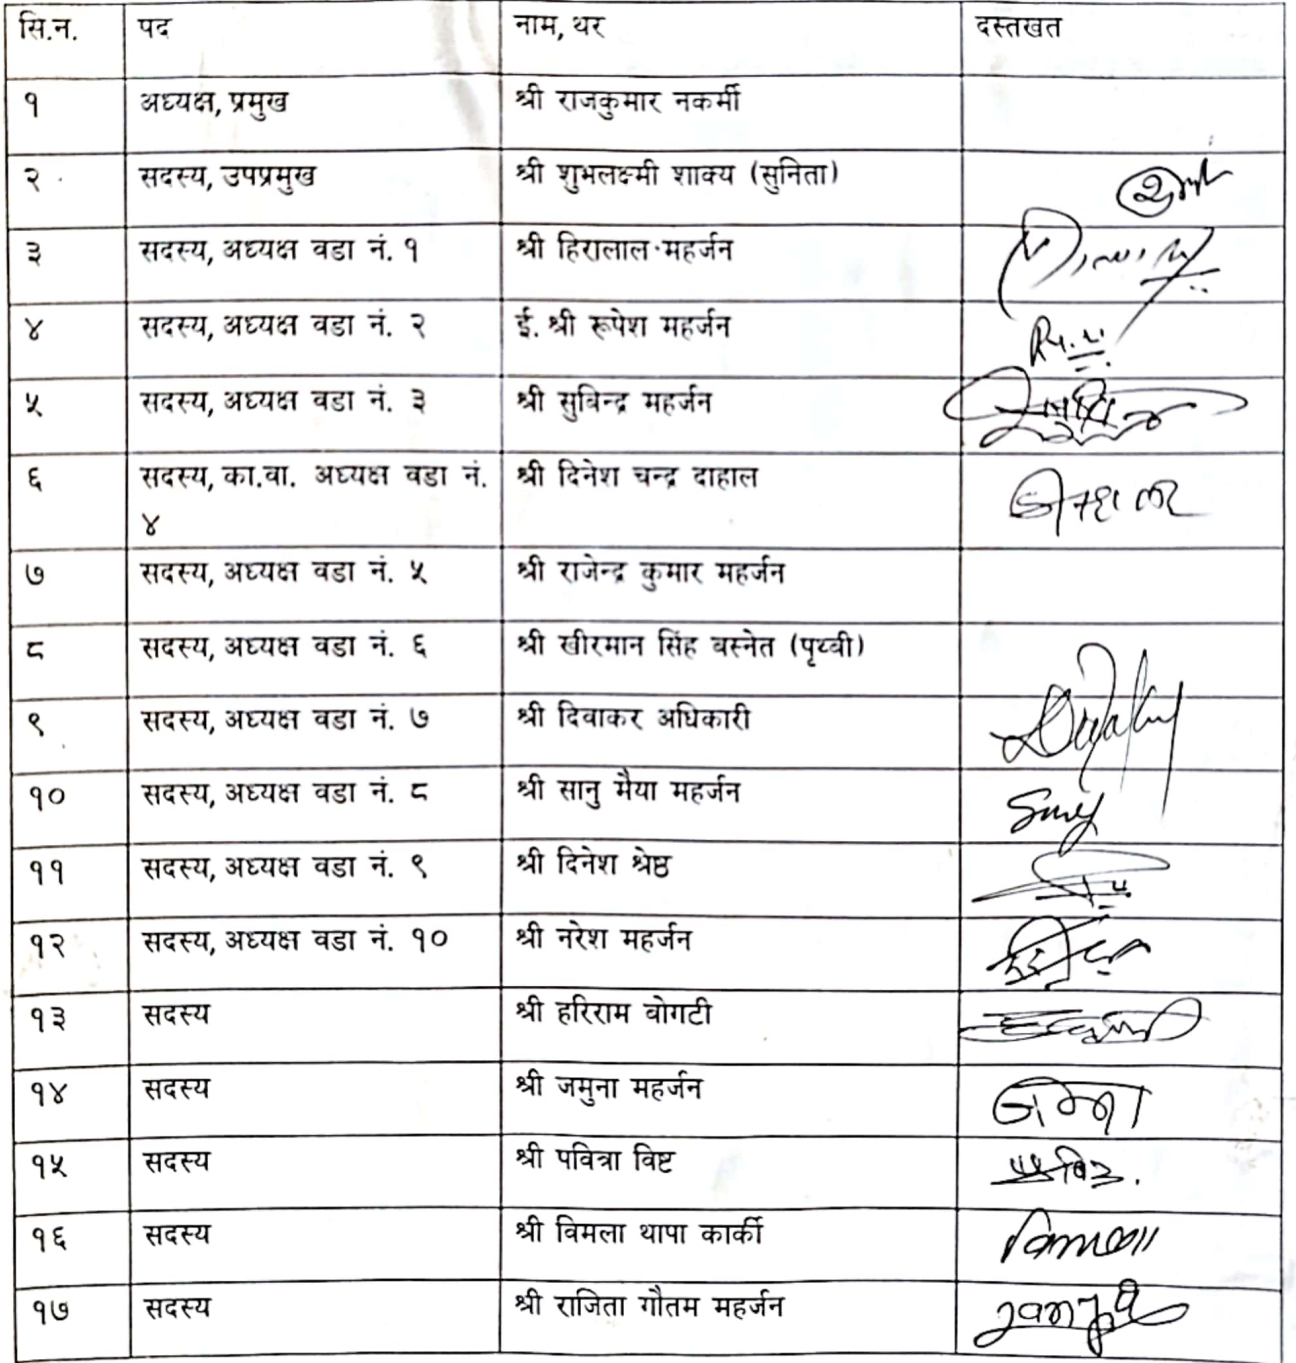 सि.न. पद नाम, थर दस्तखत
१ अध्यक्ष, प्रमुख श्री राजकुमार नकर्मी
२ सदस्य, उपप्रमुख श्री शुभलक्ष्मी शाक्य (सुनिता)
३ सदस्य, अध्यक्ष वडा नं. १ श्री हिरालाल महर्जन
४ सदस्य, अध्यक्ष वडा नं. २ ई. श्री रूपेश महर्जन
५ सदस्य, अध्यक्ष वडा नं. ३ श्री सुबिन्द्र महर्जन
६ सदस्य, का.वा. अध्यक्ष वडा नं. श्री दिनेश चन्द्र दाहाल
४
७ सदस्य, अध्यक्ष वडा नं. ५ श्री राजेन्द्र कुमार महर्जन
८ सदस्य, अध्यक्ष वडा नं. ६ श्री खीरमान सिंह बस्नेत (पृथ्वी)
९ सदस्य, अध्यक्ष वडा नं. ७ श्री दिवाकर अधिकारी
१० सदस्य, अध्यक्ष वडा नं. ८ श्री सानु मैया महर्जन
११ सदस्य, अध्यक्ष वडा नं. ९ श्री दिनेश श्रेष्ठ
१२ सदस्य, अध्यक्ष वडा नं. १० श्री नरेश महर्जन
१३ सदस्य श्री हरिराम बोगटी
१४ सदस्य श्री जमुना महर्जन
१५ सदस्य श्री पवित्रा विष्ट
१६ सदस्य श्री विमला थापा कार्की
१७ सदस्य श्री राजिता गौतम महर्जन